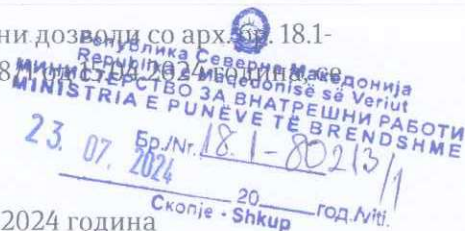 ни дозволи со арх. бр. 18.1-
од 17.04.2024 година, се
Република Северна Македонија
Republika e Maqedonisë së Veriut
МИНИСТЕРСТВО ЗА ВНАТРЕШНИ РАБОТИ
MINISTRIA E PUNËVE TË BRENDSHME
Бр./Nr. 18.1-80213/1
23. 07. 2024
20 год./viti.
Скопје - Shkup
2024 година